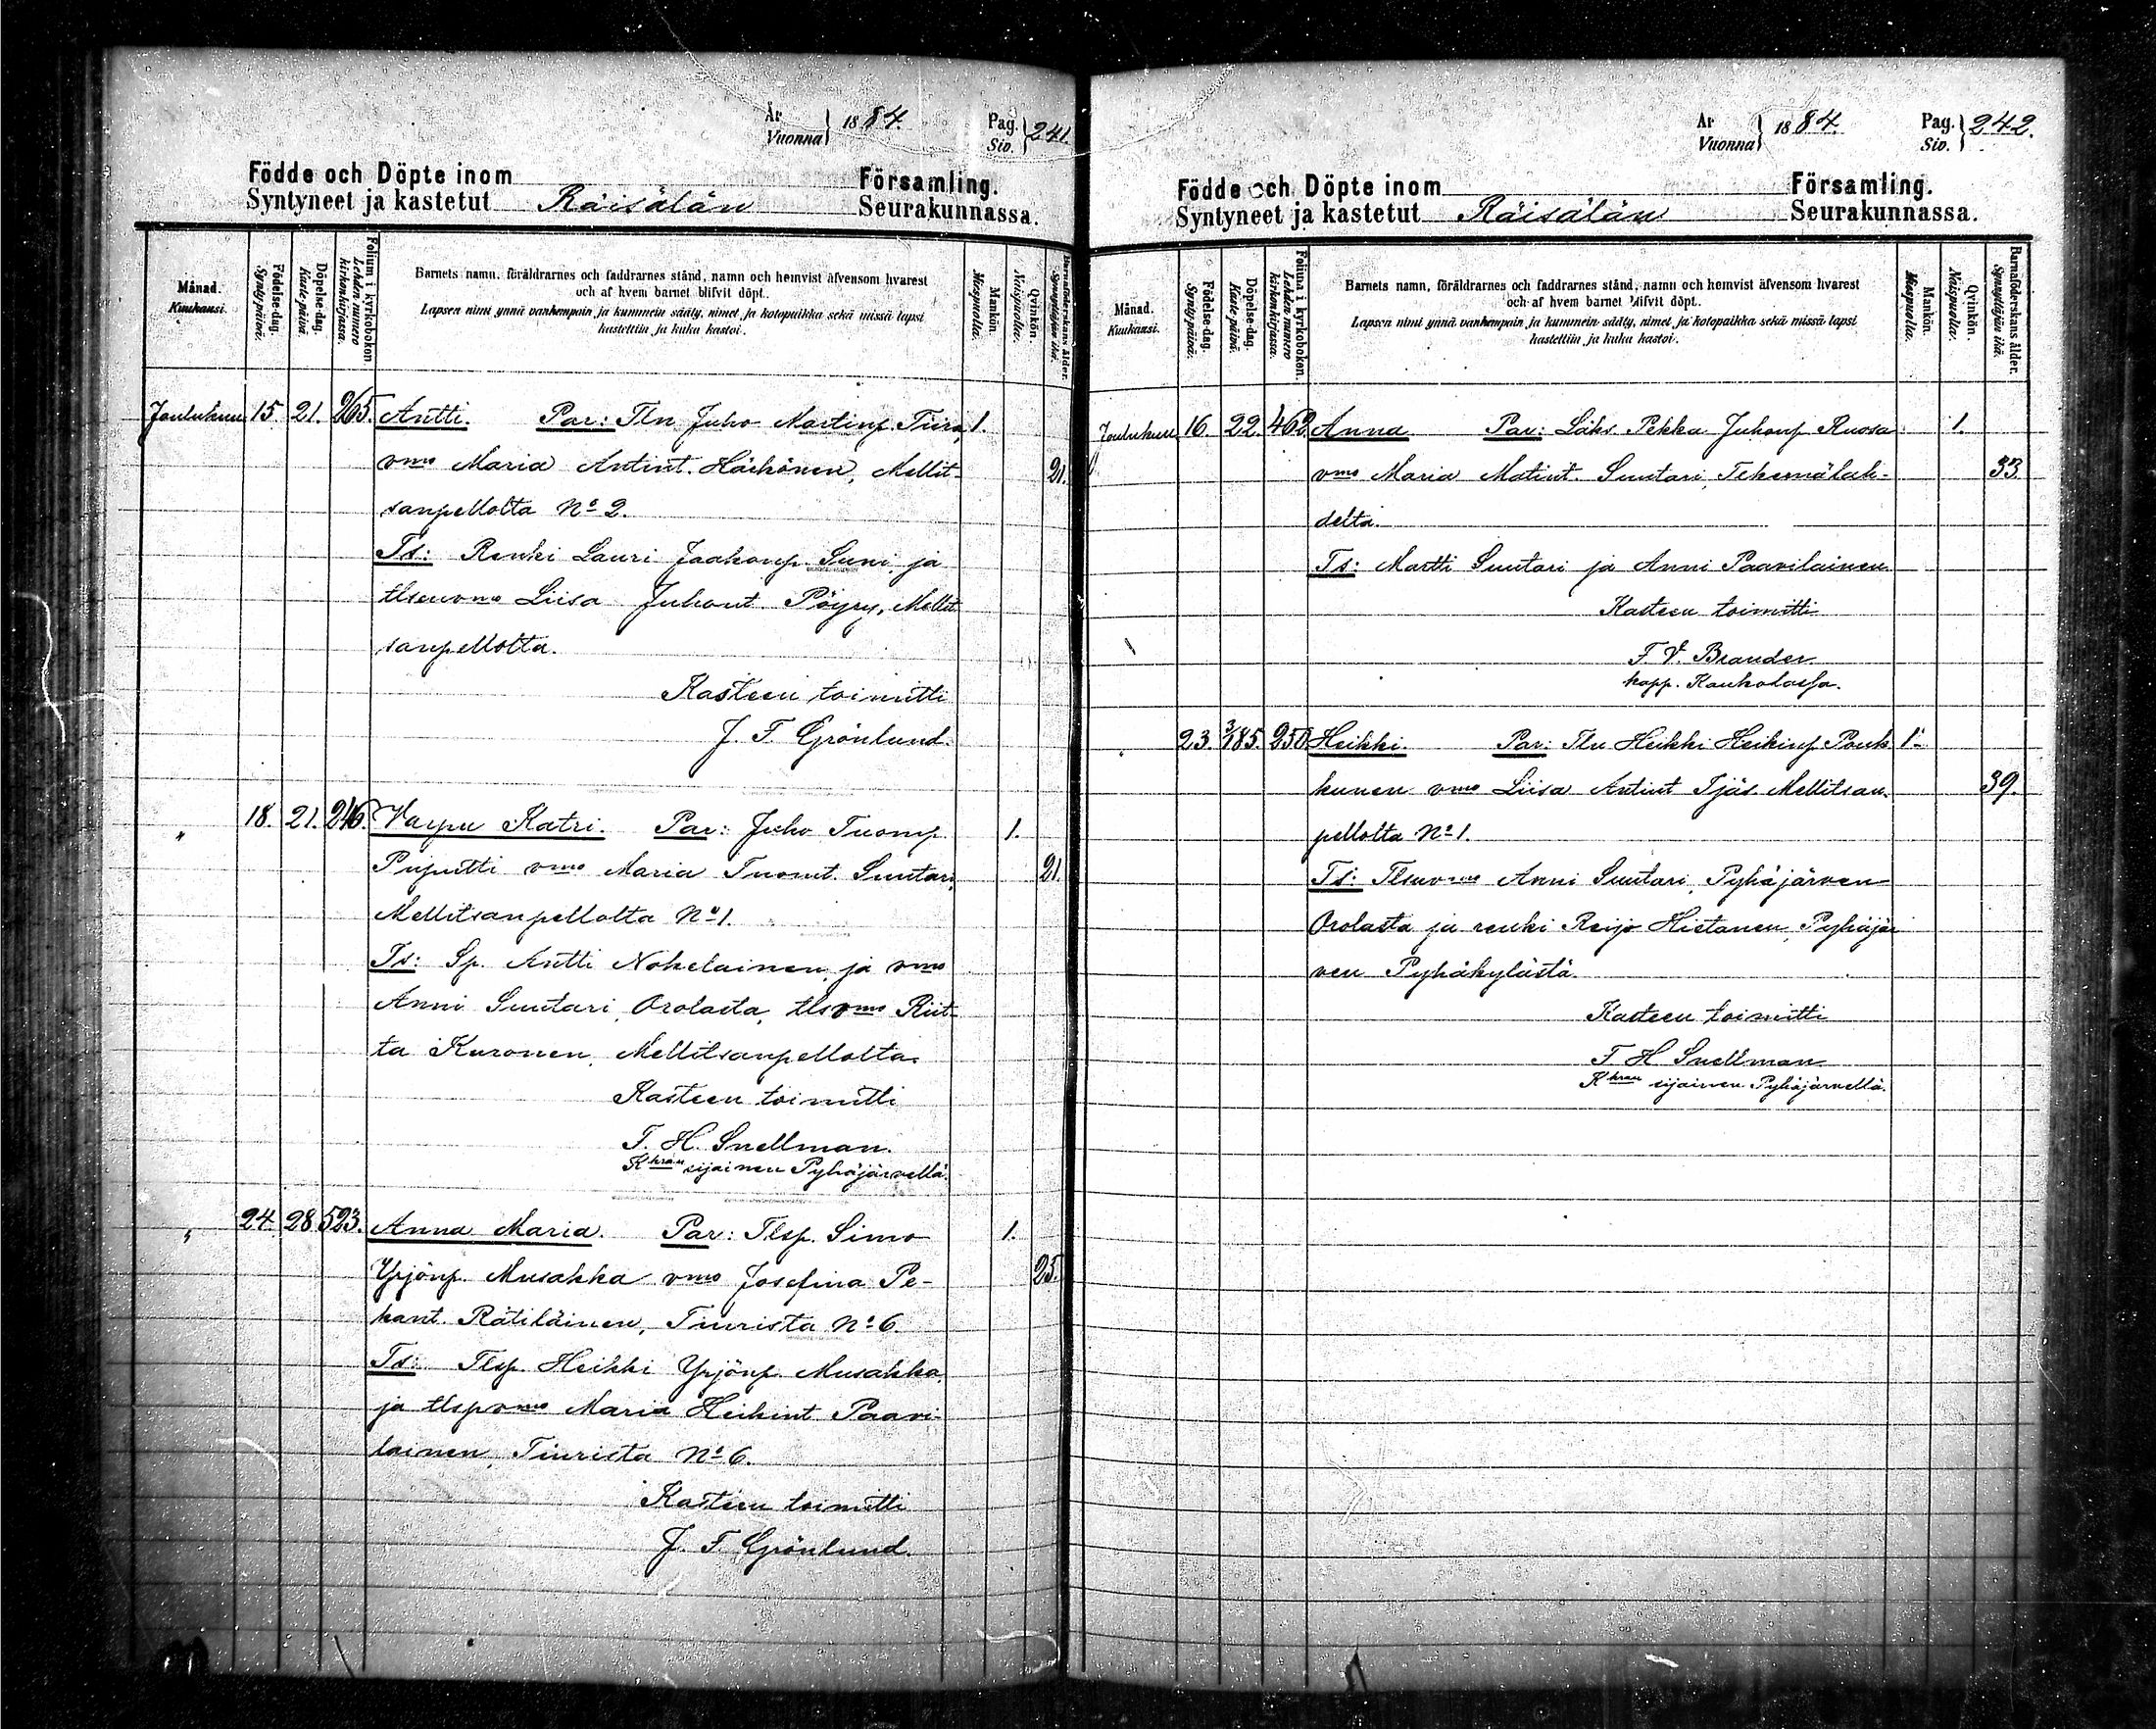 År
Vuonna } 1884.
Pag.
Siv. } 241.
Födde och Döpte inom Församling.
Syntyneet ja kastetut Räisälän Seurakunnassa.
Månad.
Kuukausi.
Födelse-dag.
Syntypäivä.
Döpelse-dag.
Kaste-päivä.
Folium i kyrkoboken
Lehden numero
kirkonkirjassa.
Barnets namn, föräldrarnes och faddrarnes stånd, namn och hemvist äfvensom hvarest
och af hvem barnet blifvit döpt.
Lapsen nimi ynnä vanhempain ja kummein sääty, nimet ja kotopaikka sekä missä lapsi
kastettiin ja kuka kastoi.
Mankön.
Miespuolia.
Qvinkön.
Naispuolia.
Barnaföderskans ålder.
Synnyttäjän ikä.
Joulukuu 15. 21. 265. Antti. Par: Tln Juho Martinp. Tiira, 1.
vmo Maria Antint. Härkönen, Mellit- 21.
sanpellolta No 2.
Ts: Renki Lauri Jaakonp. Suni, ja
tlsenvmo Liisa Juhont. Pöyry, Mellit-
sanpellolta.
Kasteen toimitti
J. F. Grönlund.
" 18. 21. 246. Vappu Katri. Par: Juho Tuomp. 1.
Piiputti vmo Maria Tuomt. Suutari, 21.
Mellitsanpellolta No 1.
Ts: Sp. Antti Nokelainen ja vmo
Anni Suutari, Orolasta, tlsvmo Riit-
ta Kuronen, Mellitsanpellolta.
Kasteen toimitti
T. H. Snellman.
Khran sijainen Pyhäjärvellä.
" 24. 28. 523. Anna Maria. Par: Tlsp. Simo 1.
Yrjönp. Musakka vmo Josefina Pe- 25.
kant. Rätiläinen, Tiurista No 6.
Ts: Tlsp. Heikki Yrjönp. Musakka,
ja tlspvmo Maria Heikint. Paavi-
lainen, Tiurista No 6.
Kasteen toimitti
J. F. Grönlund.
År
Vuonna } 1884.
Pag.
Siv. } 242.
Födde och Döpte inom Församling.
Syntyneet ja kastetut Räisälän Seurakunnassa.
Månad.
Kuukausi.
Födelse-dag.
Syntypäivä.
Döpelse-dag.
Kaste-päivä.
Folium i kyrkoboken.
Lehden numero
kirkonkirjassa.
Barnets namn, föräldrarnes och faddrarnes stånd, namn och hemvist äfvensom hvarest
och af hvem barnet blifvit döpt.
Lapsen nimi ynnä vanhempain ja kummein sääty, nimet ja kotopaikka sekä missä lapsi
kastettiin ja kuka kastoi.
Mankön.
Miespuolia.
Qvinkön.
Naispuolia.
Barnaföderskans ålder.
Synnyttäjän ikä.
Joulukuu 16. 22. 462. Anna Par: Läks. Pekka Juhonp Ruosa 1.
vmo Maria Matint. Suutari, Tekemälah- 33.
delta.
Ts: Martti Suutari ja Anni Paavilainen.
Kasteen toimitti
F. V. Brander.
kapp. Kaukolassa.
" 23. 3/1 85. 250. Heikki. Par: Tln Heikki Heikinp Pouk- 1.
kunen vmo Liisa Antint Ijäs Mellitsan- 39.
pellolta No 1.
Ts: Tlsnvmo Anni Suutari, Pyhäjärven
Orolasta ja renki Reijo Hietanen, Pyhäjär
ven Pyhäkylästä.
Kasteen toimitti
T H Snellman
Khran sijainen Pyhäjärvellä.